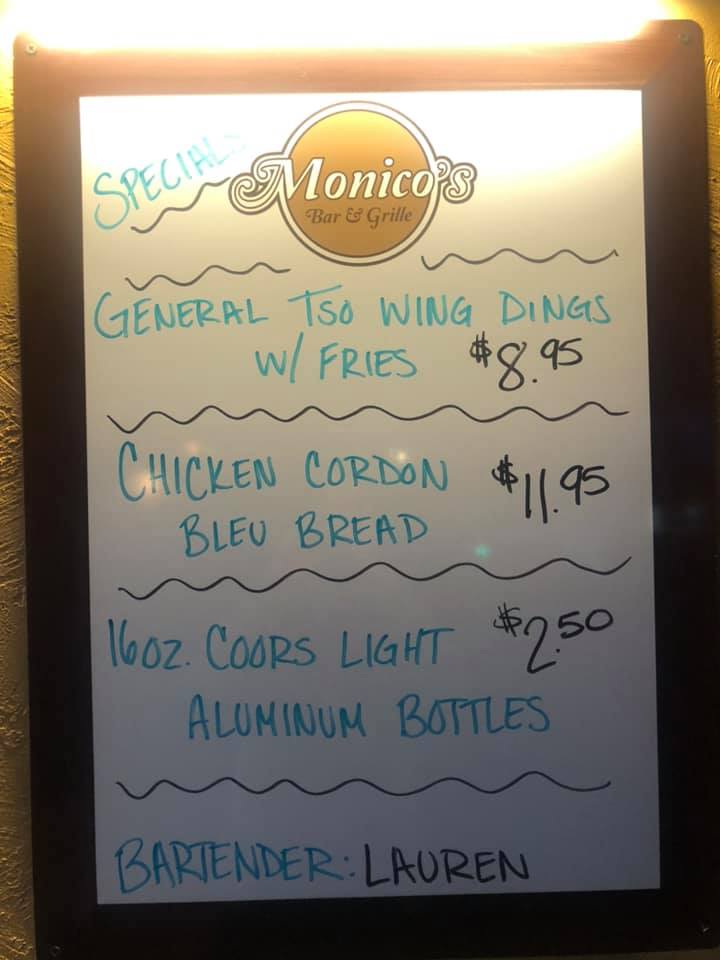 SPECIALS
Monico's
Bar & Grille
GENERAL TSO WING DINGS
W/ FRIES $8.95
CHICKEN CORDON $11.95
BLEU BREAD
16oz. COORS LIGHT $2.50
ALUMINUM BOTTLES
BARTENDER: LAUREN